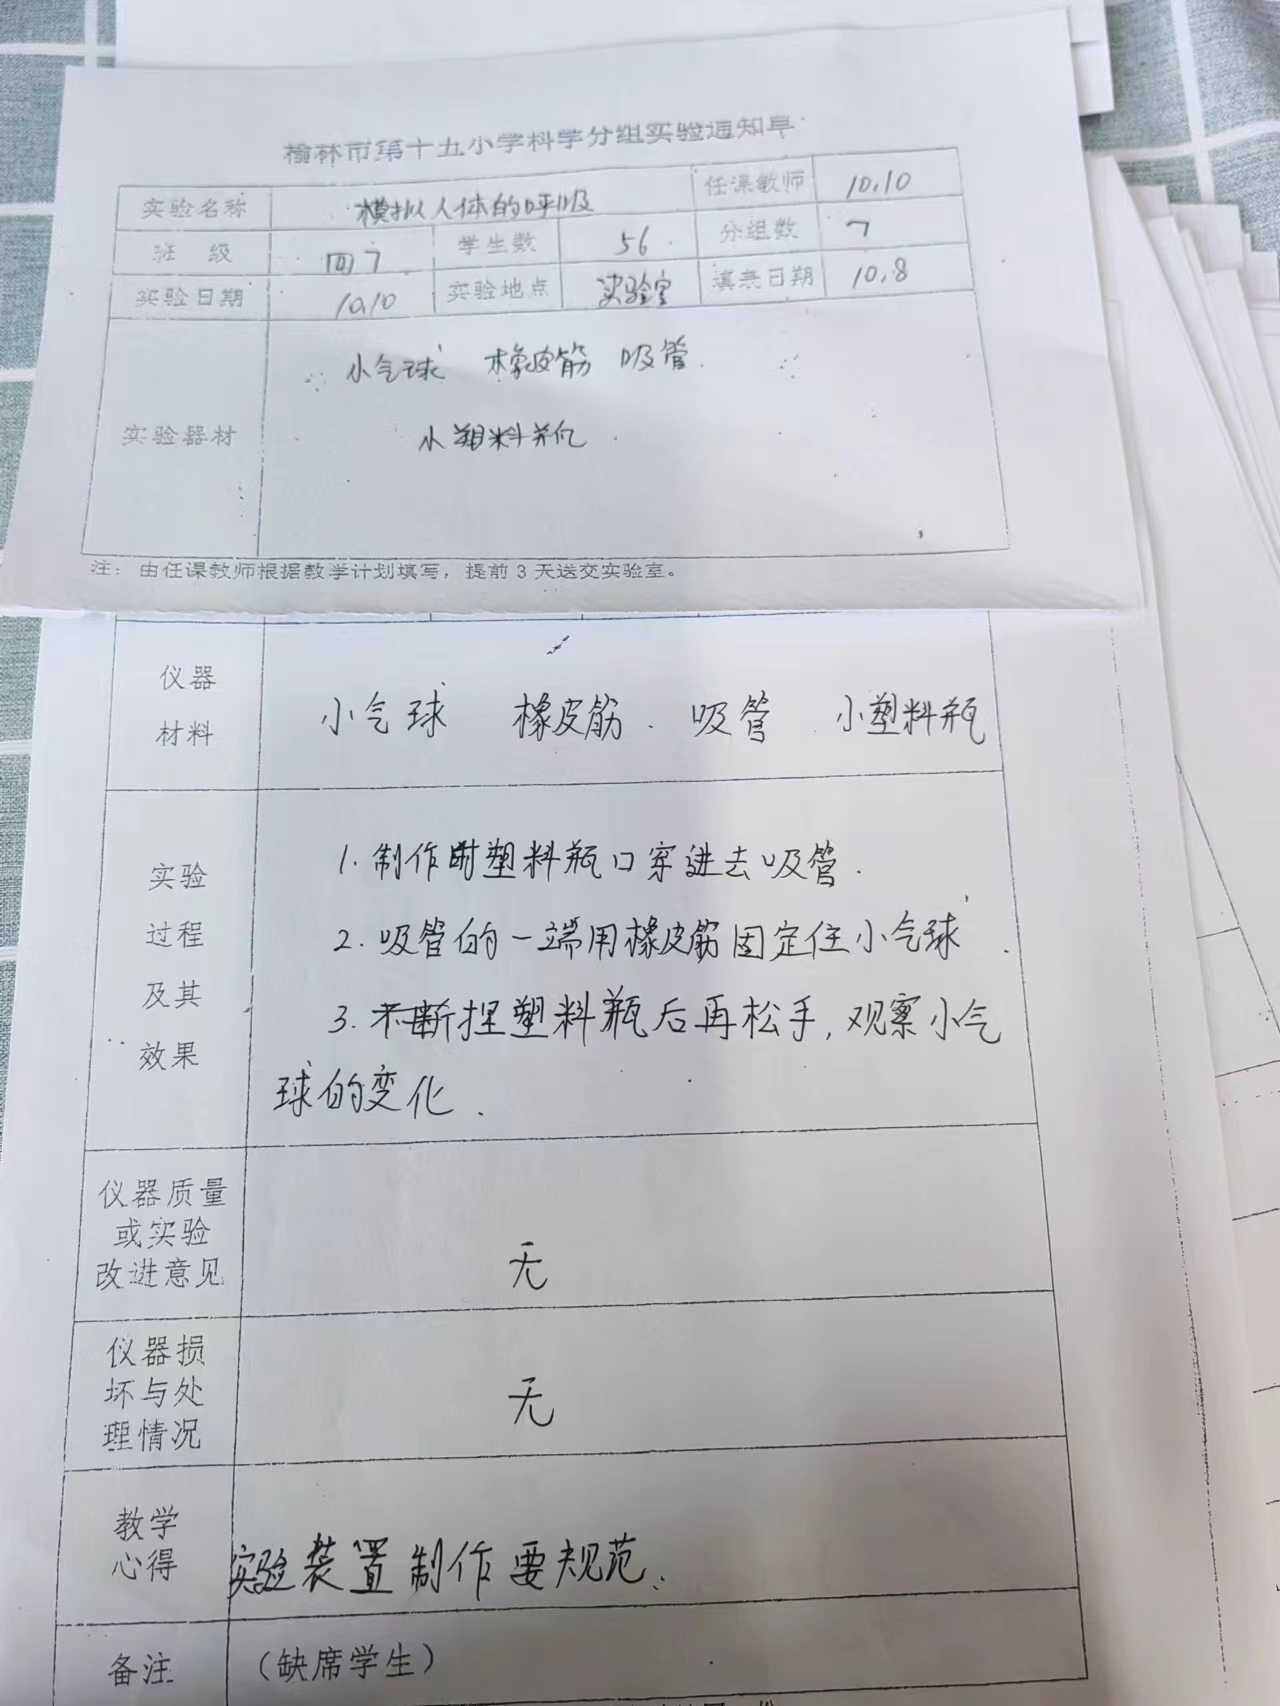 榆林市第十五小学科学分组实验通知单
实验名称 模拟人体的呼吸 任课教师 10.10
班 级 四7 学生数 56 分组数 7
实验日期 10.10 实验地点 实验室 填表日期 10.8
小气球 橡皮筋 吸管
实验器材 小塑料瓶
注：由任课教师根据教学计划填写，提前3天送交实验室。
仪器
材料
小气球 橡皮筋 吸管 小塑料瓶
实验
过程
及其
效果
1.制作时塑料瓶口穿进去吸管.
2.吸管的一端用橡皮筋固定住小气球.
3.不断捏塑料瓶后再松手,观察小气
球的变化.
仪器质量
或实验
改进意见
无
仪器损
坏与处
理情况
无
教学
心得
实验装置制作要规范.
备注 （缺席学生）